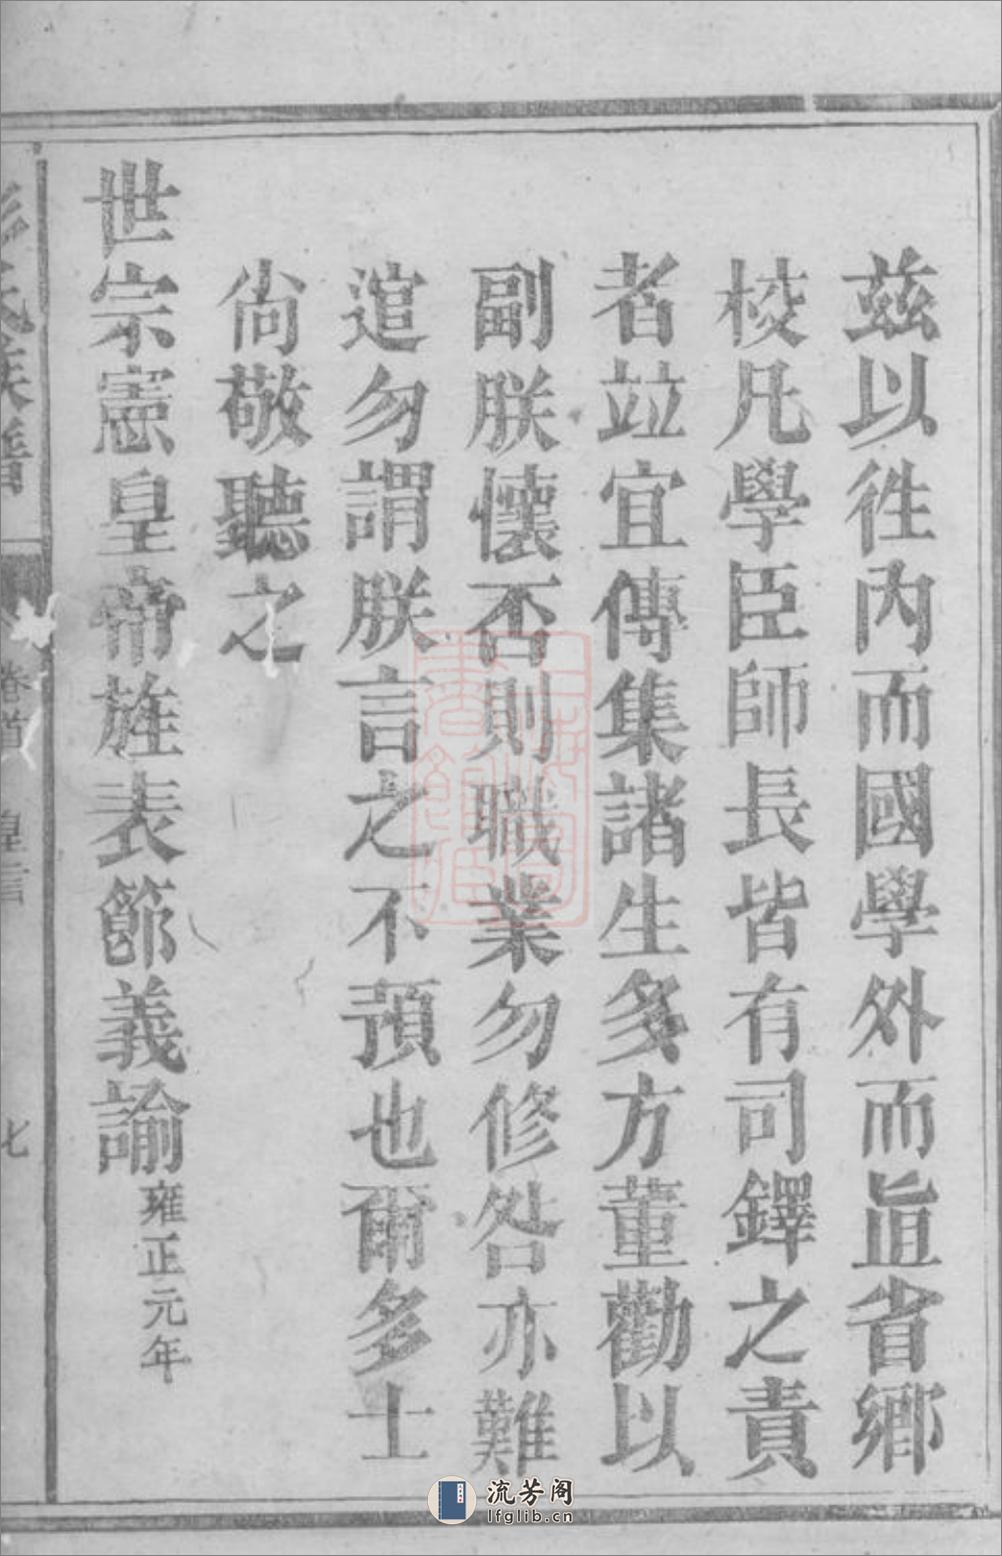 茲以徃內而國學外而直省鄉
校凡學臣師長皆有司鐸之責
者竝宜傳集諸生多方董勸以
副朕懷否則職業勿修咎亦難
逭勿謂朕言之不預也爾多士
尚敬聽之
世宗憲皇帝旌表節義諭雍正元年
氏族譜
卷首
七
流芳阁
lfglib.cn